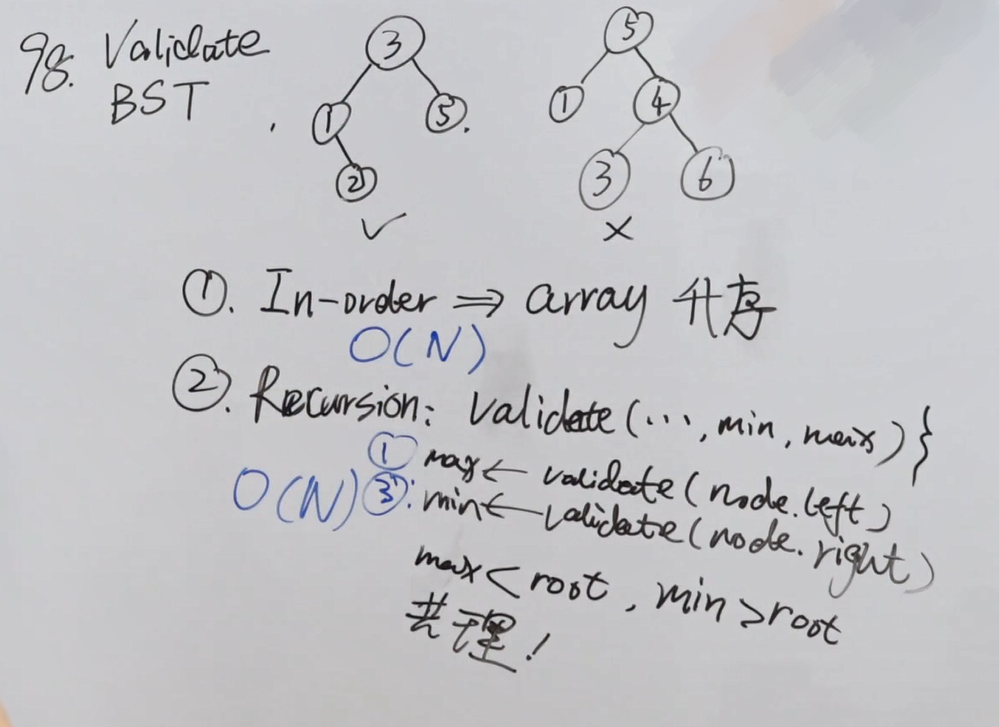 98. Validate
BST
3
1
5.
2
✓
5
1
4
3
6
×
①. In-order ⇒ array 升序
O(N)
②. Recursion: Validate(..., min, max) }
① max ← validate(node.left)
O(N) ③: min ← validate(node.right)
max < root, min > root
!